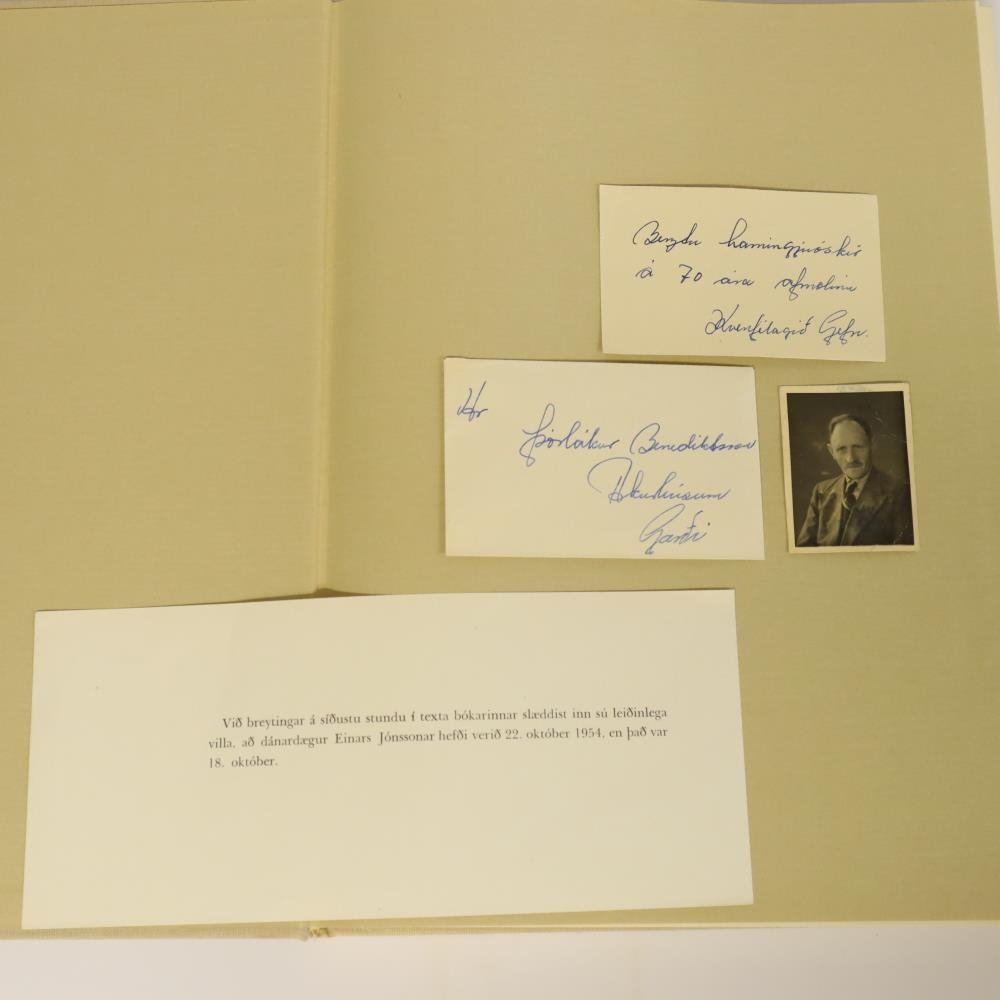 Beztu hamingjuóskir
á 70 ára afmælinu
Kvenfélagið Gefn.
Hr
Þorlákur Benediktsson
Akurhúsum
Garði
Við breytingar á síðustu stundu í texta bókarinnar slæddist inn sú leiðinlega
villa, að dánardægur Einars Jónssonar hefði verið 22. október 1954, en það var
18. október.